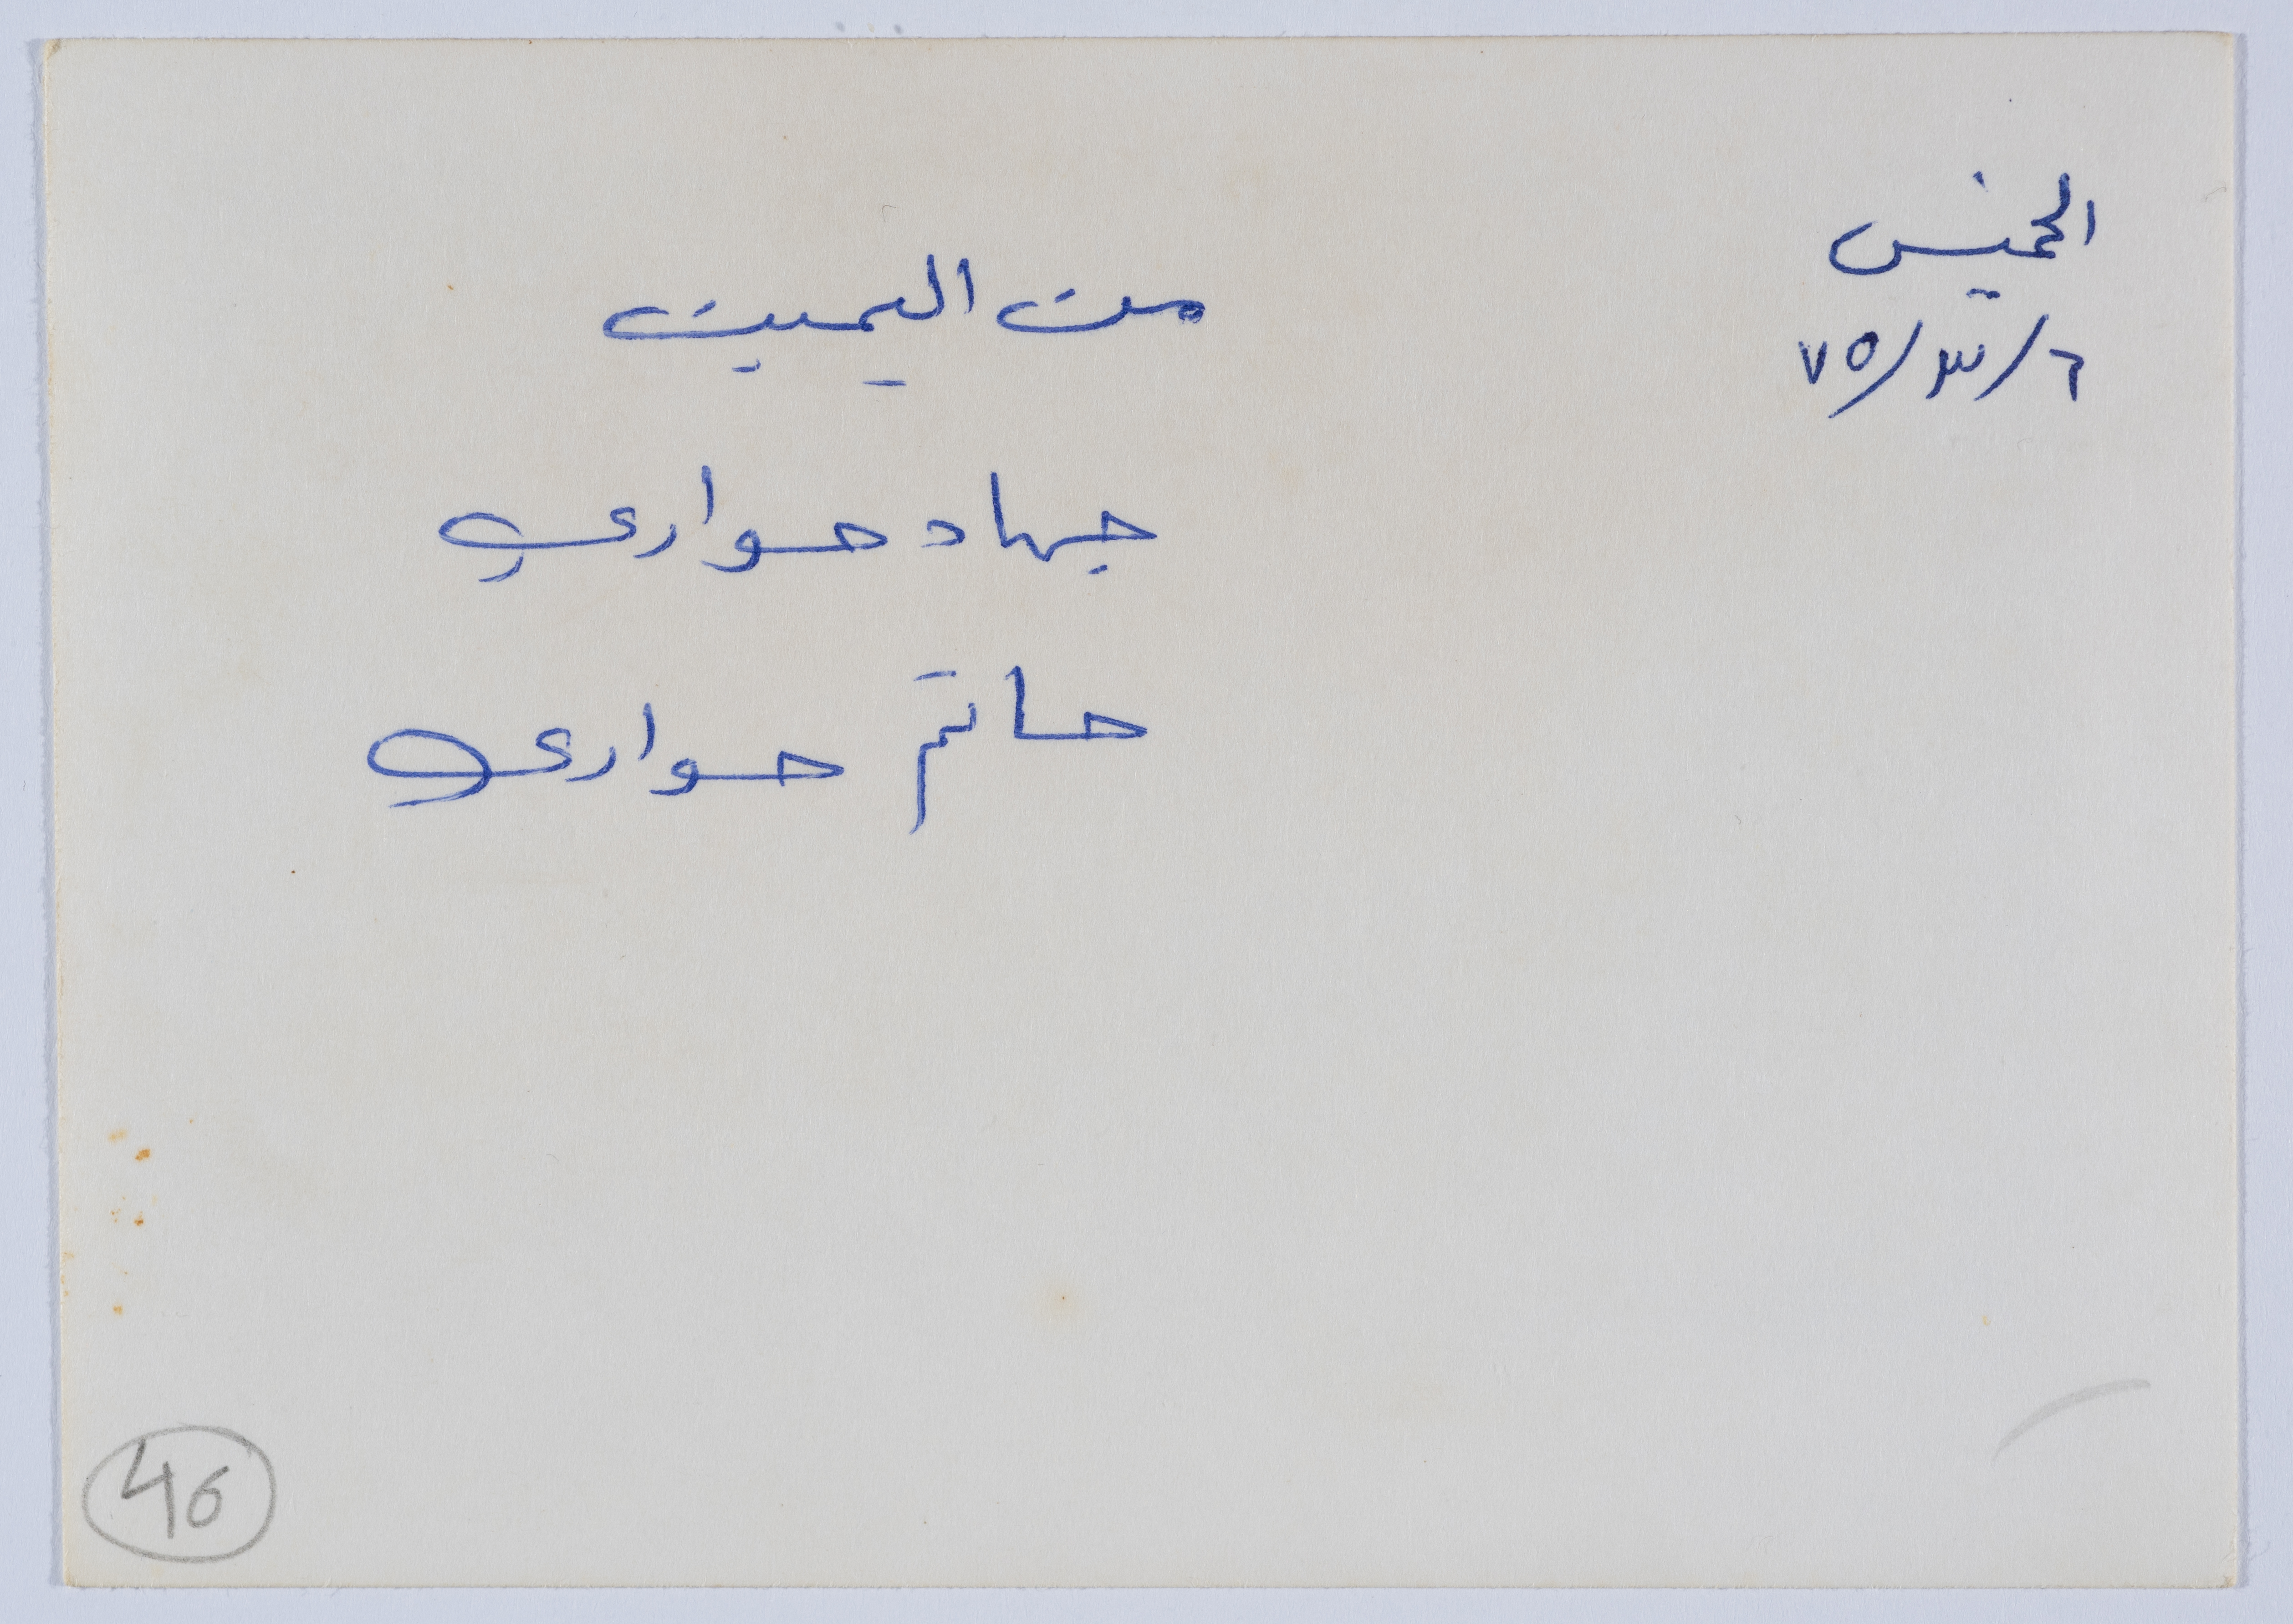 الخميس
٦/٣/٧٥
من اليمين
جهاد حواري
حاتم حواري
46